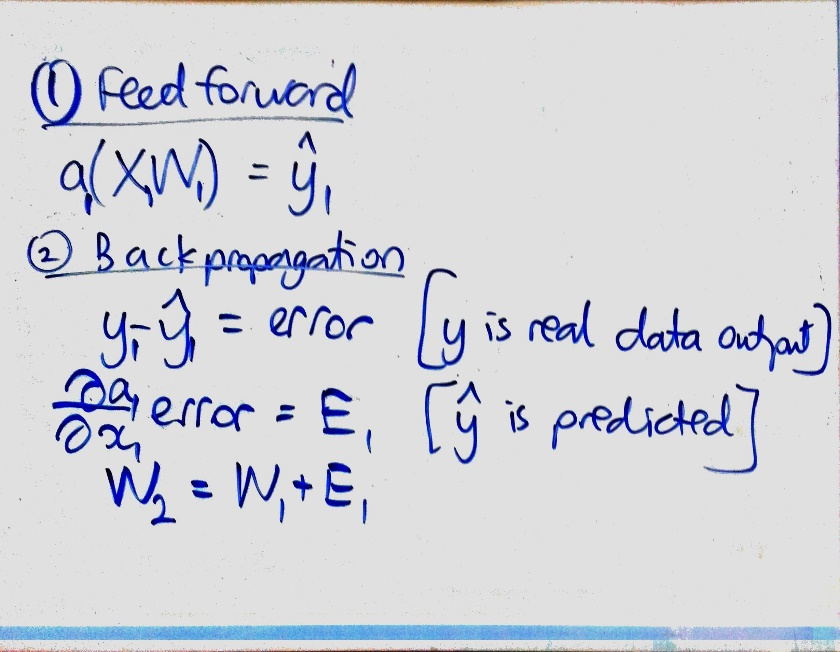 ① Feed forward
a₁(X₁W₁) = ŷ₁
② Back propagation
y₁-ŷ₁ = error [y is real data output]
∂a₁/∂x₁ error = E₁ [ŷ is predicted]
W₂ = W₁+E₁